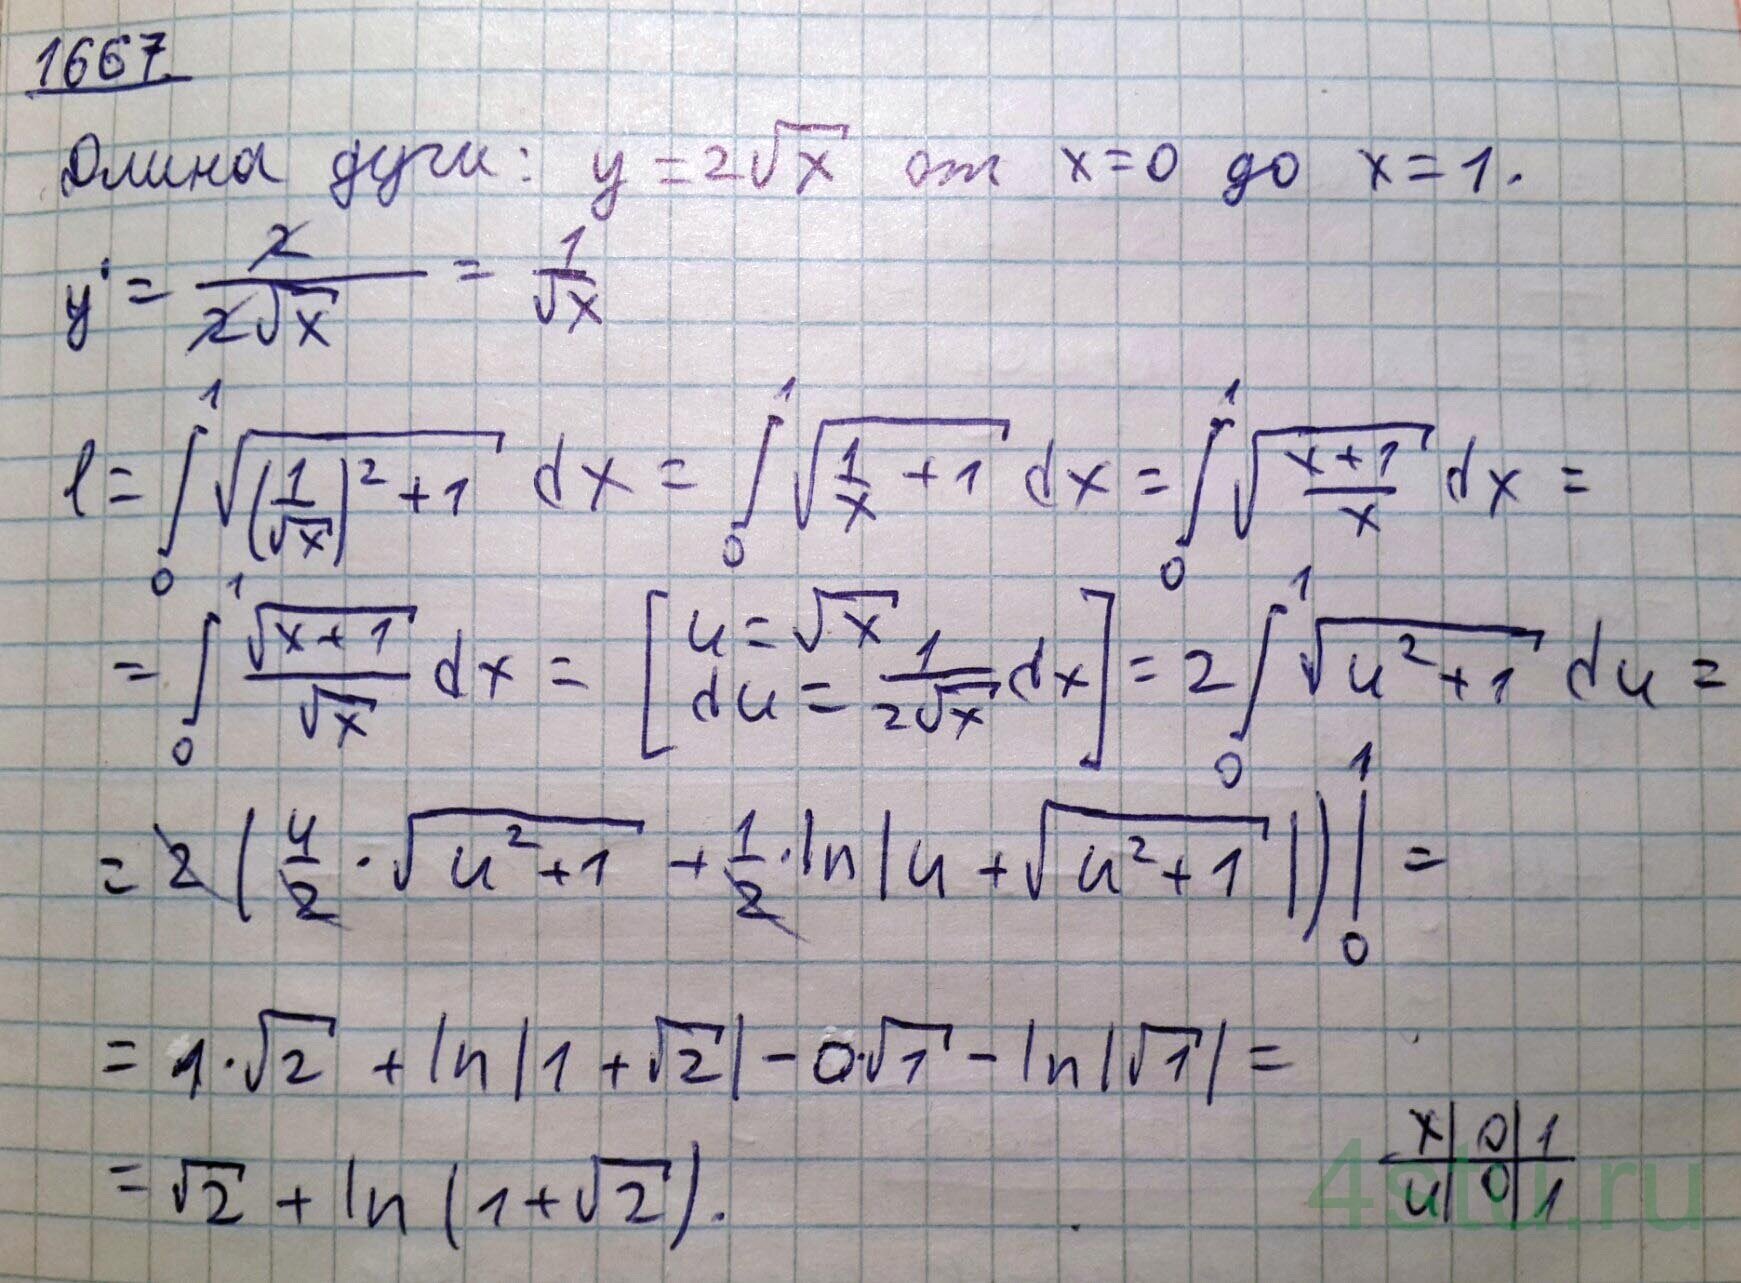 1667.
Длина дуги: y = 2√x от x=0 до x=1.
y' = 2/(2√x) = 1/√x
l = ∫₀¹ √((1/√x)² + 1) dx = ∫₀¹ √(1/x + 1) dx = ∫₀¹ √((x+1)/x) dx =
= ∫₀¹ √(x+1)/√x dx = [u = √x; du = 1/(2√x) dx] = 2 ∫₀¹ √(u²+1) du =
= 2 (u/2 · √(u²+1) + 1/2 · ln|u + √(u²+1)|) |₀¹ =
= 1·√2 + ln|1 + √2| − 0·√1 − ln|√1| =
= √2 + ln(1+√2).
x | 0 | 1
u | 0 | 1
4stu.ru